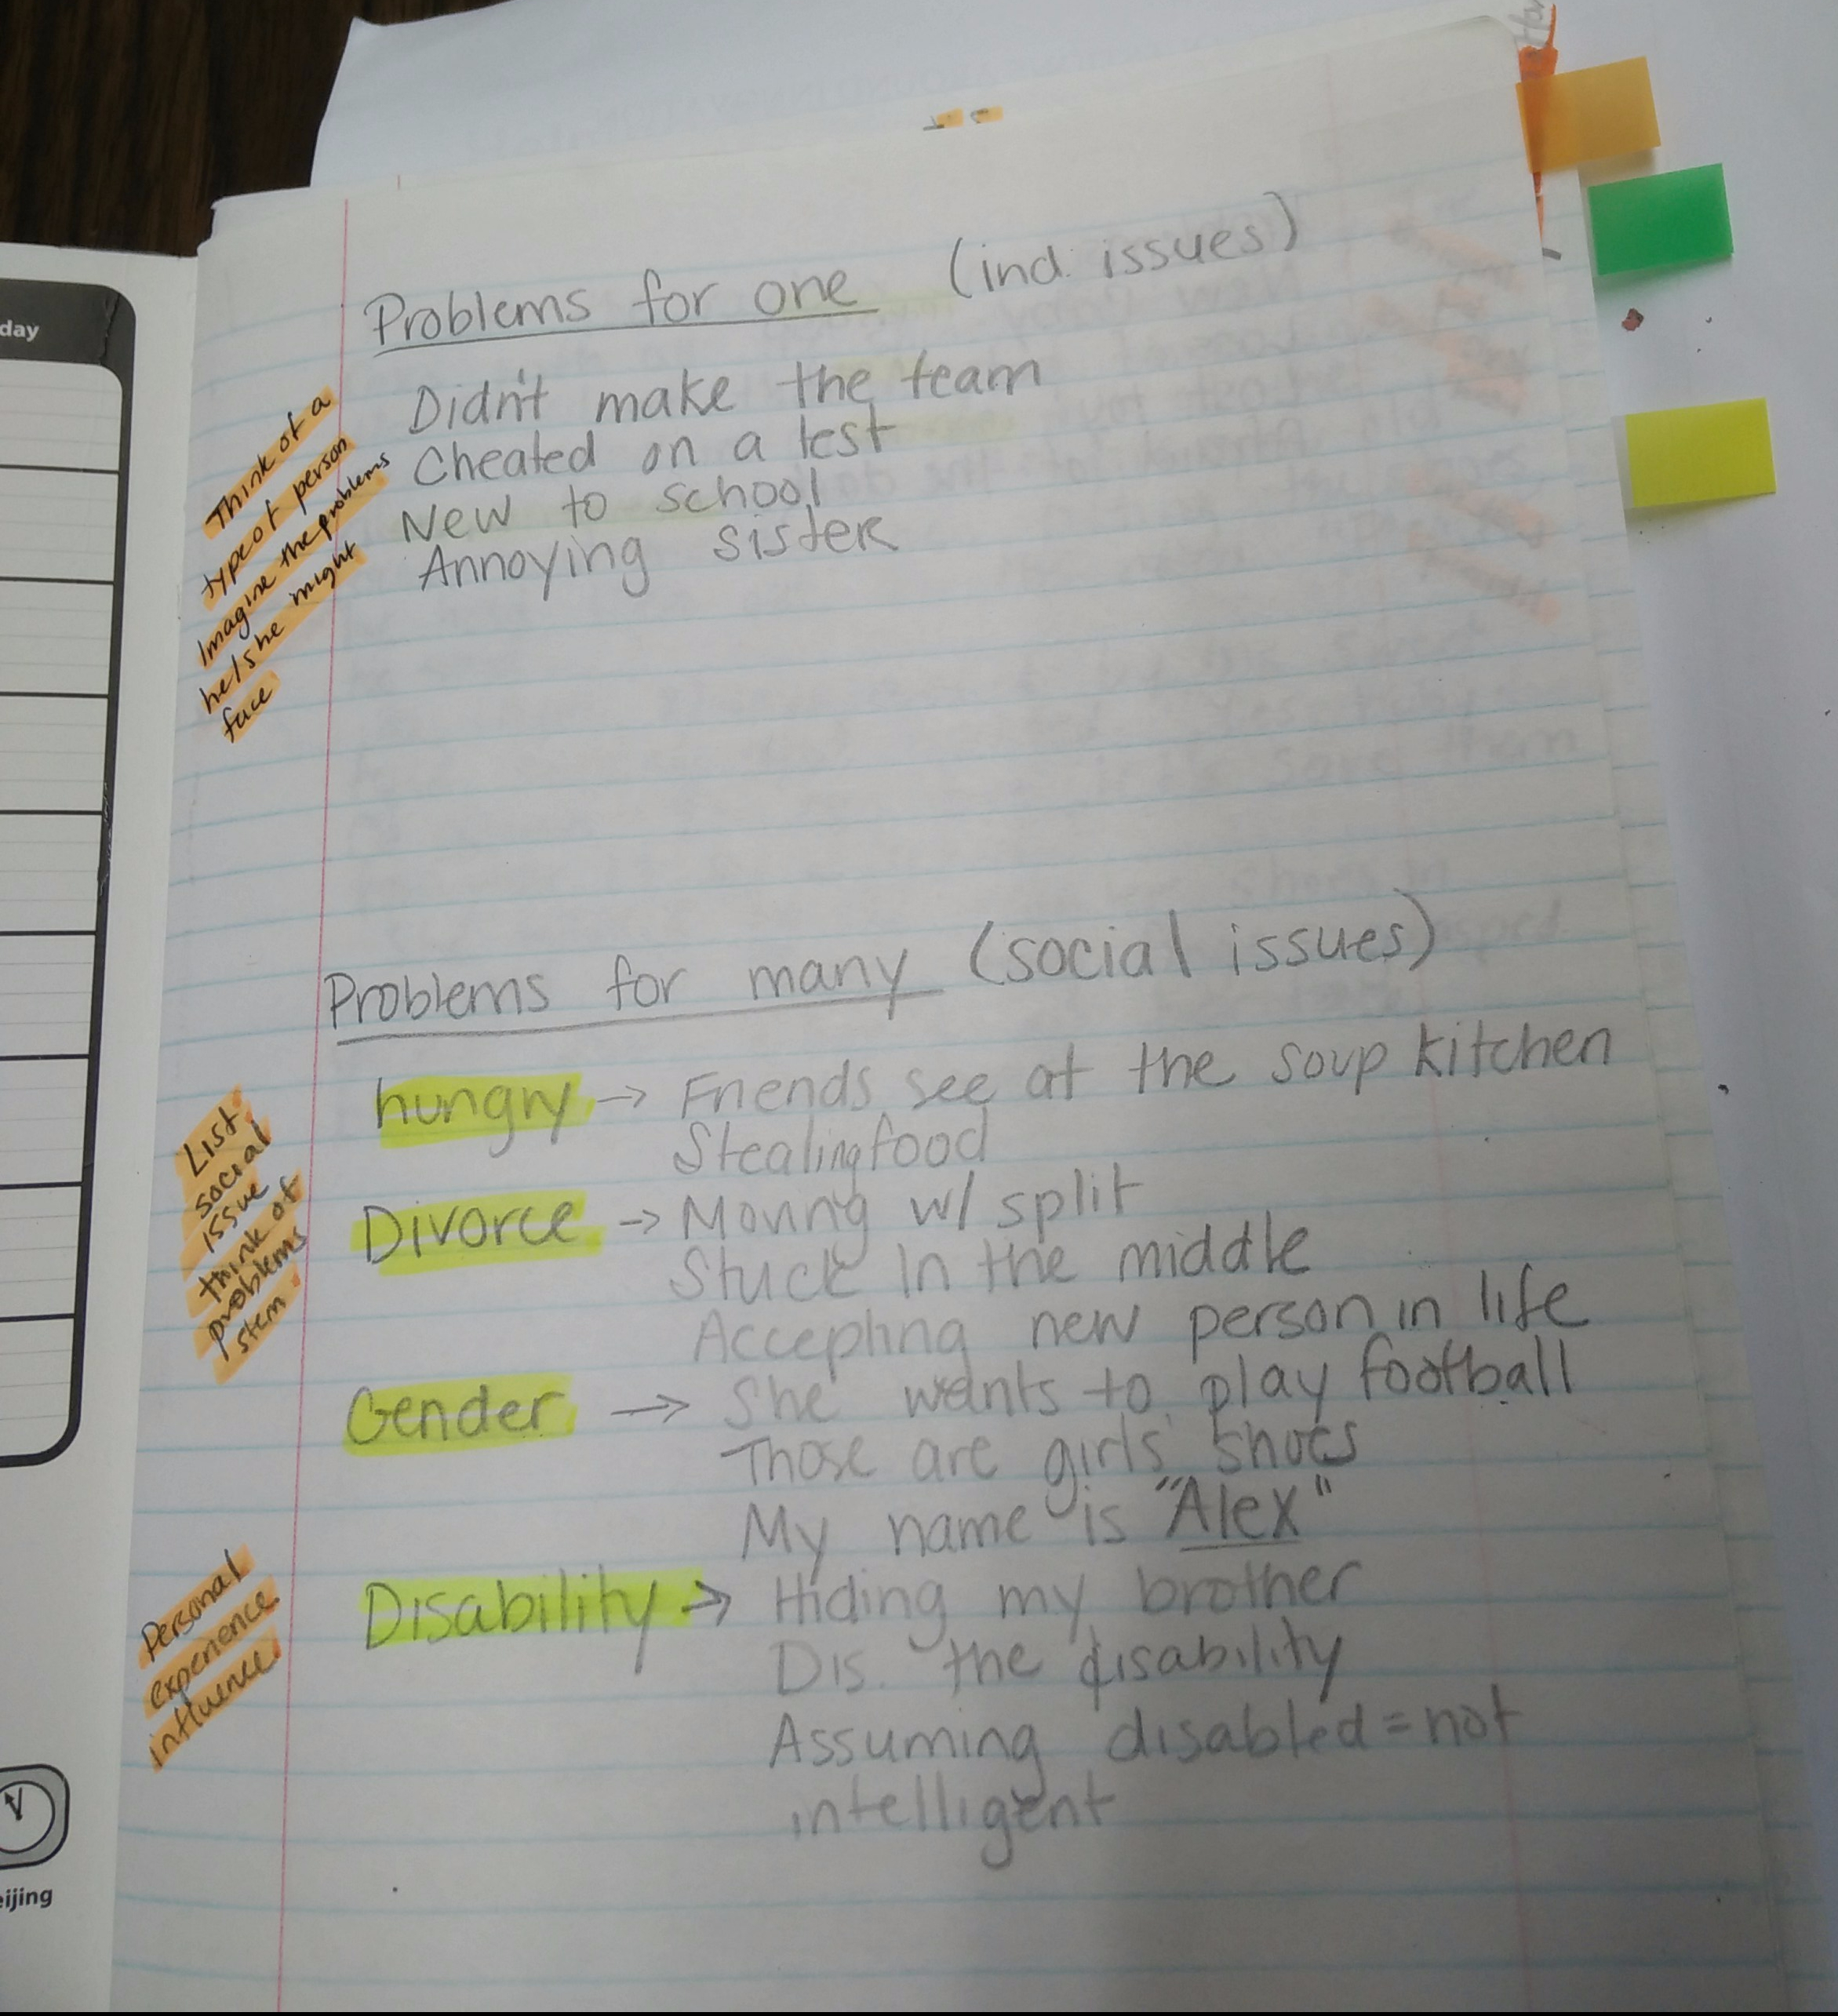 day
Problems for one (ind. issues)
Didn't make the team
Cheated on a test
New to school
Annoying sister
Think of a
type of person
Imagine the problems
he/she might
face
Problems for many (social issues)
hungry → Friends see at the soup kitchen
Stealing food
Divorce → Moving w/ split
Stuck in the middle
Accepting new person in life
Gender → She wants to play football
Those are girls' shoes
My name is "Alex"
Disability → Hiding my brother
Dis. the disability
Assuming disabled = not
intelligent
List
social
issue
think of
problems
stem
Personal
experience
influence
eijing